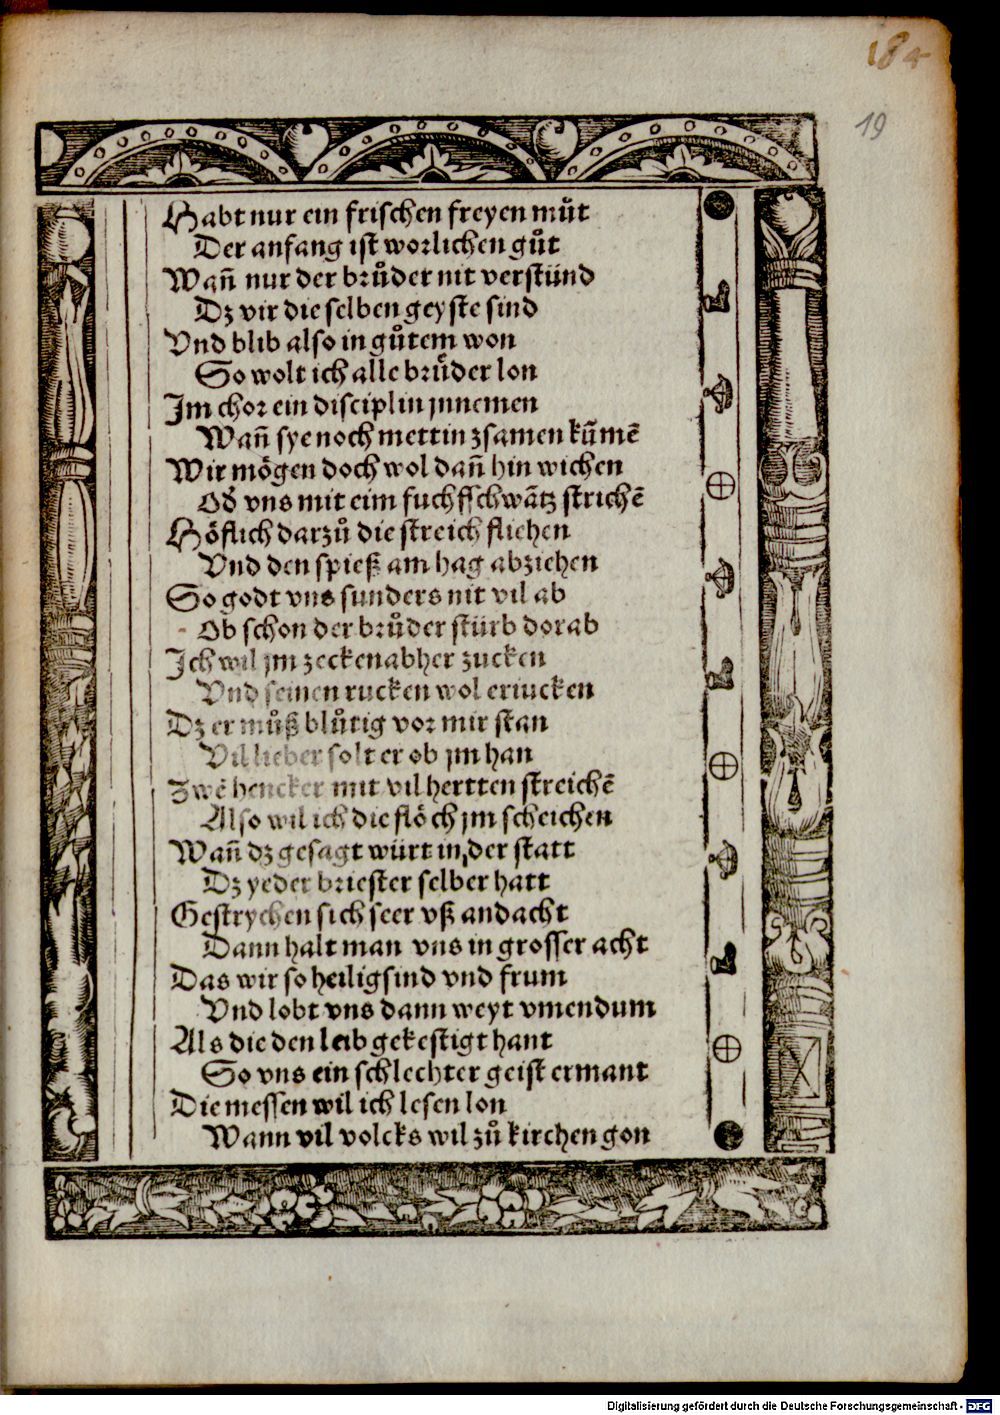 184
19
Habt nur ein frischen freyen muͦt
Der anfang ist worlichen guͦt
Wañ nur der bruͦder nit verstünd
Dz vir die selben geyste sind
Vnd blib also in guͦtem won
So wolt ich alle bruͤder lon
Im chor ein disciplin jnnemen
Wañ sye noch mettin zsamen kũmẽ
Wir mögen doch wol dañ hin wichen
Ob vns mit eim fuchsschwãtz strichẽ
Höflich darzuͦ die streich fliehen
Vnd den spieß am hag abziehen
So godt vns sunders nit vil ab
Ob schon der bruͦder stürb dorab
Ich wil jm zecken abher zucken
Vnd seinen rucken wol eriucken
Dz er muͦß bluͦtig vor mir stan
Vil lieber solt er ob jm han
Zwẽ hencker mit vil hertten streichẽ
Also wil ich die flöch jm scheichen
Wañ dz gesagt würt in der statt
Dz yeder briester selber hatt
Gestrychen sich seer vß andacht
Dann halt man vns in grosser acht
Das wir so heilig sind vnd frum
Vnd lobt vns dann weyt vmendum
Als die den leib gekestigt hant
So vns ein schlechter geist ermant
Die messen wil ich lesen lon
Wann vil volcks wil zuͦ kirchen gon
Digitalisierung gefördert durch die Deutsche Forschungsgemeinschaft - DFG